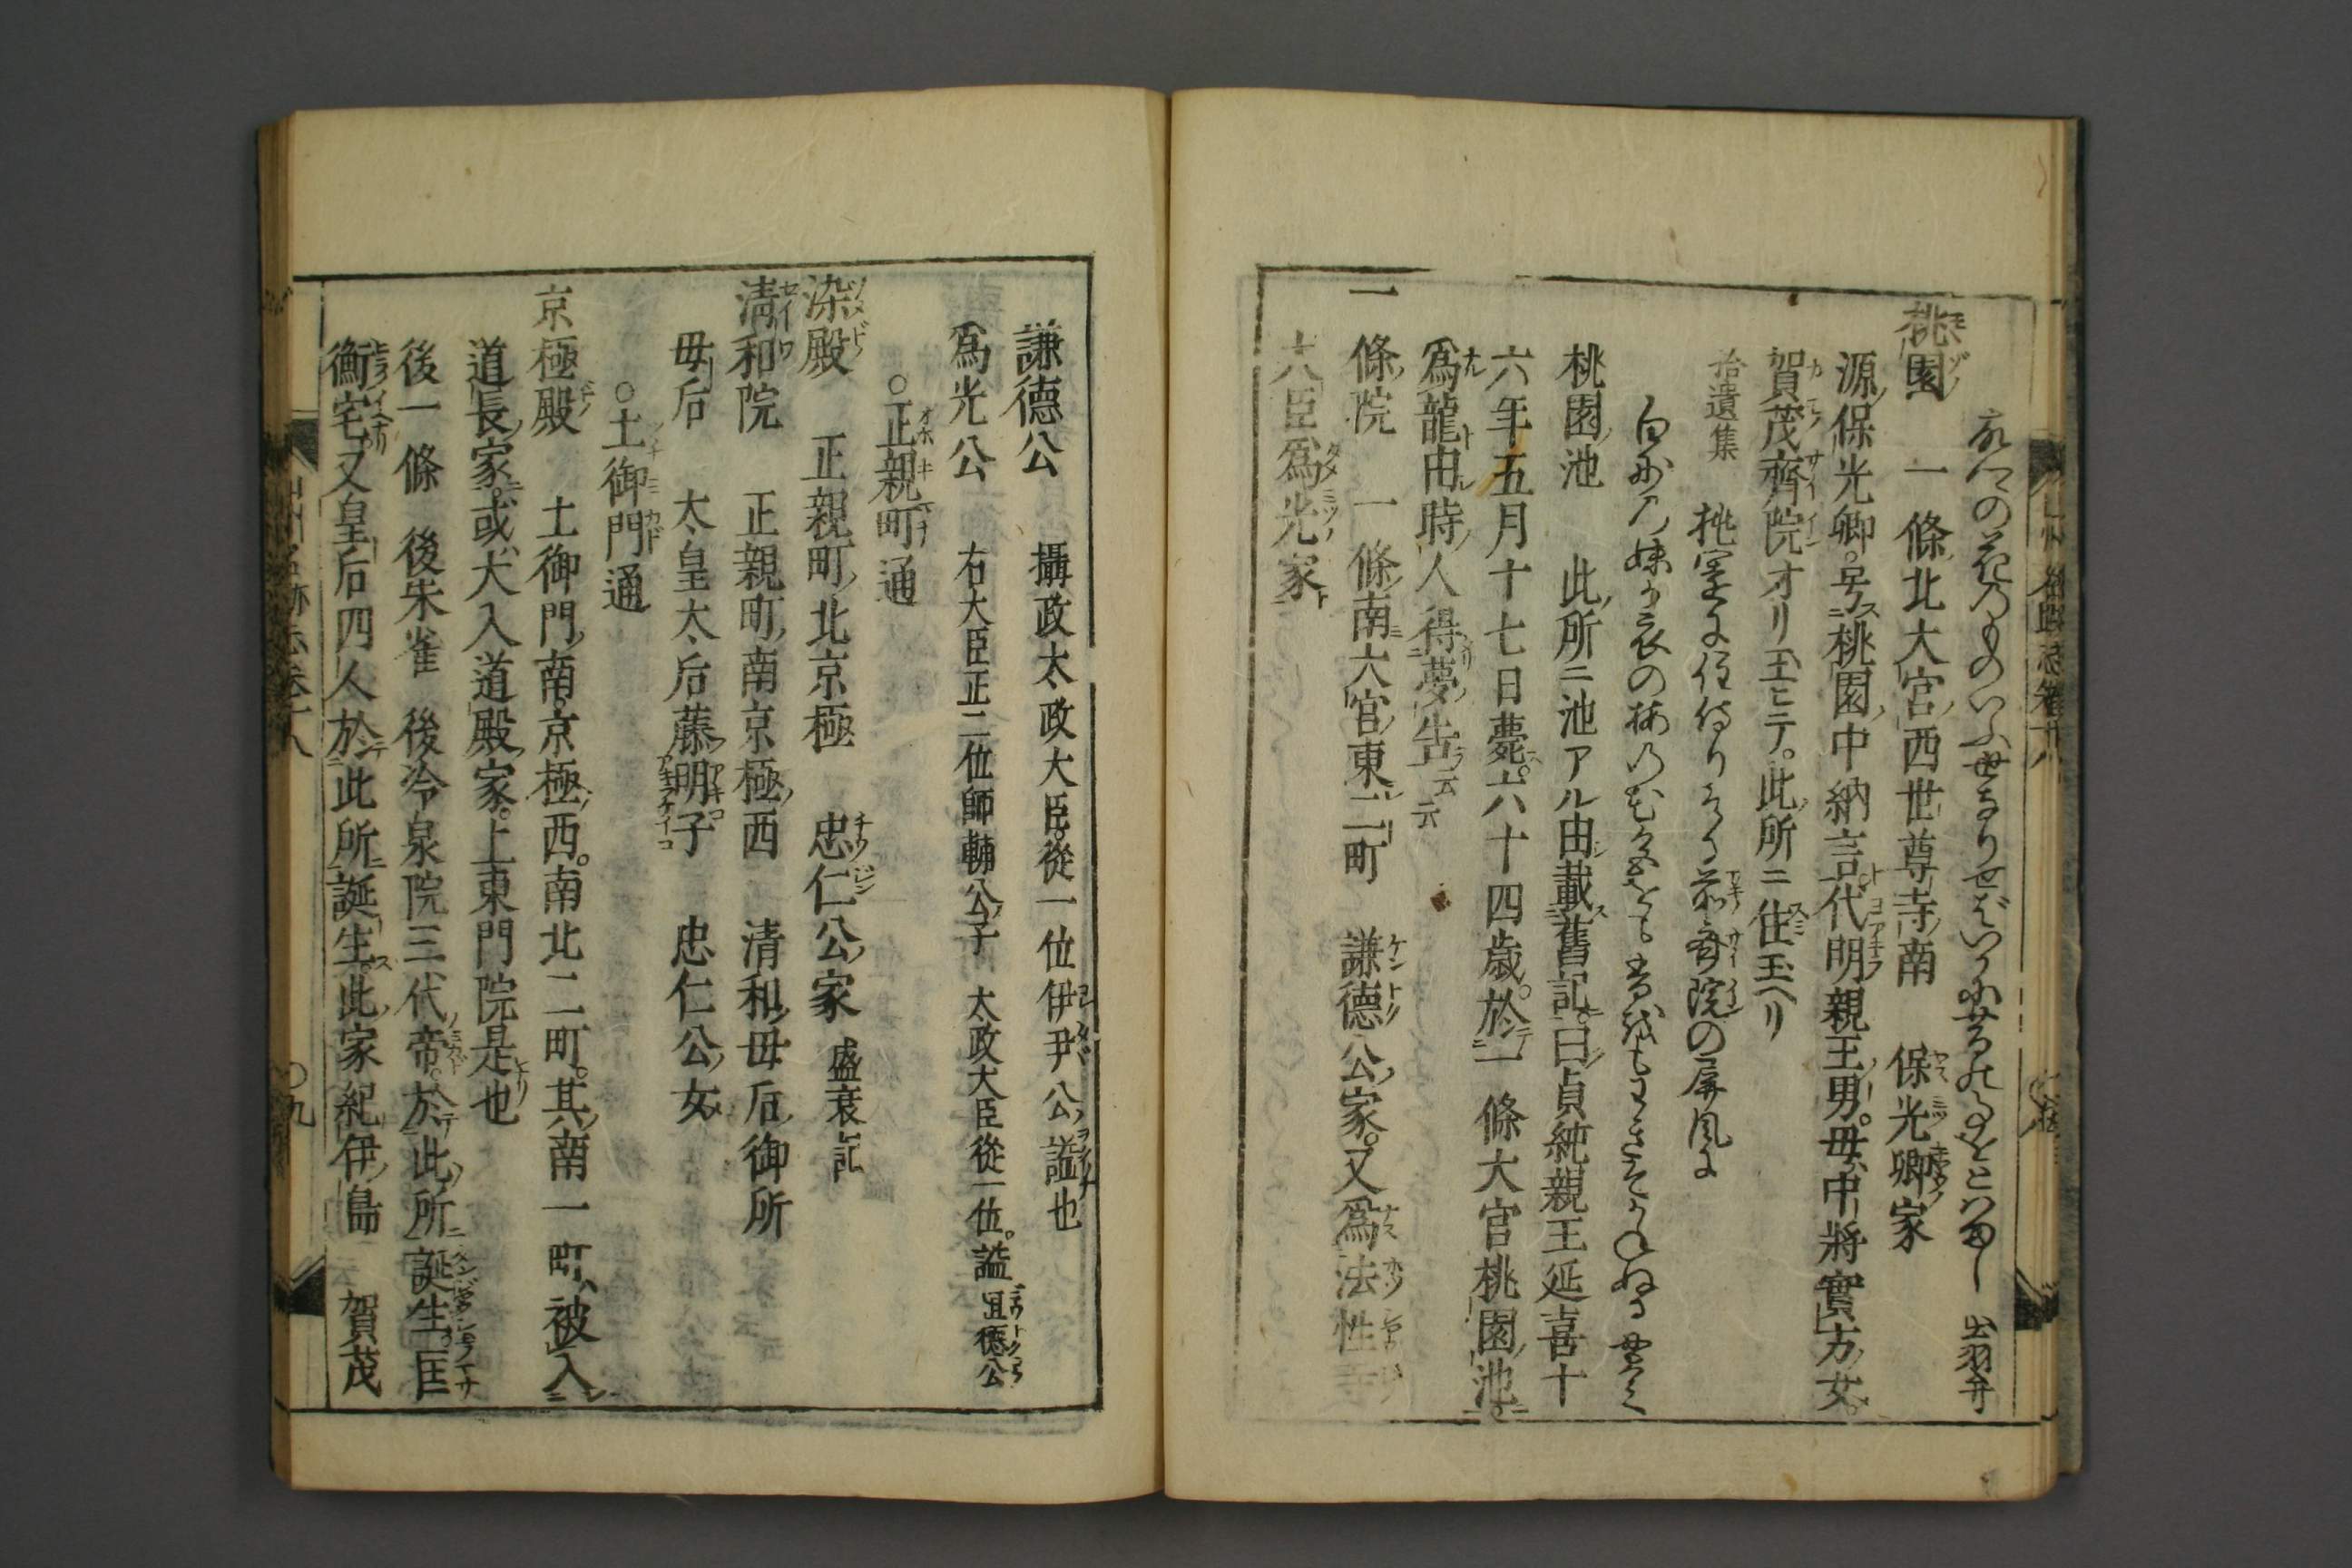 ふる里の花のものいふ世なりせばいかに昔のことをとはまし 出羽弁
桃園 一條北大宮西世尊寺南 保光卿家
源保光卿。号ス桃園中納言代明親王男。母ハ中將實方女。
賀茂齊院オリ玉ヒテ。此所ニ住玉ヘリ
拾遺集 桃園に住侍りける前齊院の屏風に
白妙の妹が衣の梅の花色をも香をもわきぞかねぬる 貫之
桃園池 此所ニ池アル由載ス舊記ニ。曰貞純親王延喜十
六年五月十七日薨ス。六十四歳。於テ一條大宮桃園ノ池ニ。
爲ル龍ト由時ノ人得夢ノ告ヲ云云
一條院 一條南大宮東二町 謙德公家。又爲法性寺
大臣爲光家ト
謙德公 攝政太政大臣從一位伊尹公ノ謚也
爲光公 右大臣正二位師輔公子 太政大臣從一位。謚恒德公
○正親町通
染殿 正親町北京極 忠仁公家 盛衰記
清和院 正親町南京極西 清和母后御所
母后 太皇太后藤明子 忠仁公女
○土御門通
京極殿 土御門南京極西。南北二町。其南一町ハ被入
道長家。或大入道殿家。上東門院是也
後一條 後朱雀 後冷泉院三代帝。於テ此所ニ誕生。匡
衡宅又皇后四人於テ此所ニ誕生ス。此家紀伊ノ島 賀茂
山州名跡志巻十八
○九